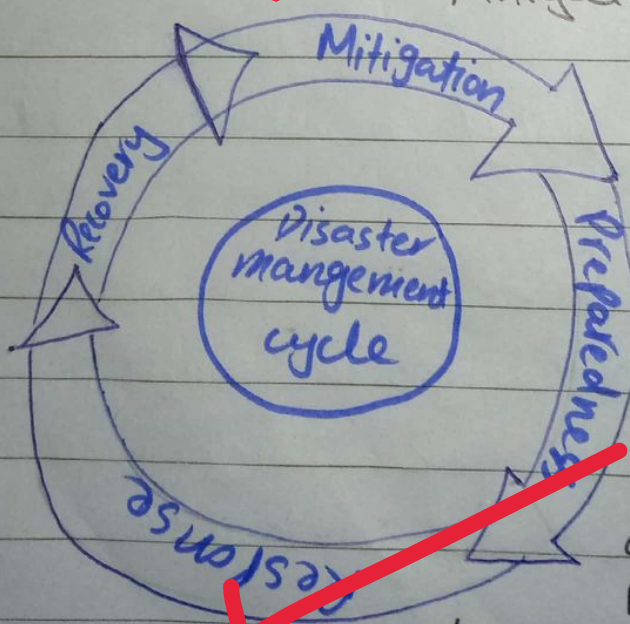 Mitigation
Preparedness
Response
Recovery
Disaster
mangement
cycle